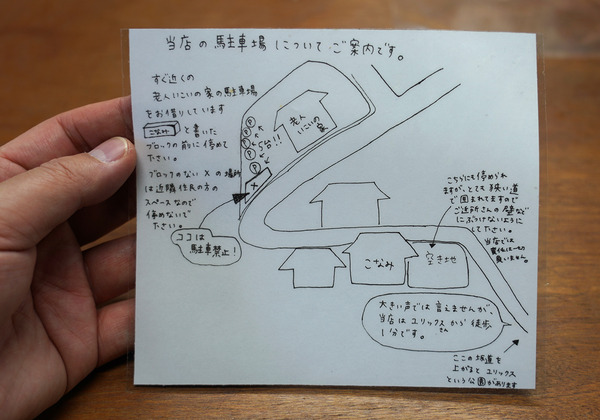 当店の駐車場についてご案内です。
すぐ近くの
老人いこいの家の駐車場
をお借りしています
こなみ と書いた
ブロックの前に停めて
下さい。
ブロックのない×の場所
は近隣住民の方の
スペースなので
停めないで
下さい。
ココは
駐車禁止!
P
P
P
P
P
5台!!
×
老人
いこいの家
こちらにも停められ
ますが、とても狭い道
で囲まれてますので
ご近所さんの壁などに
ぶつけないように
して下さい。
当店では
責任は一切
負いません。
こなみ
空き地
大きい声では言えませんが、
当店はユリックスさんから徒歩
1分です。
ここの坂道を
上がるとユリックス
という公園があります